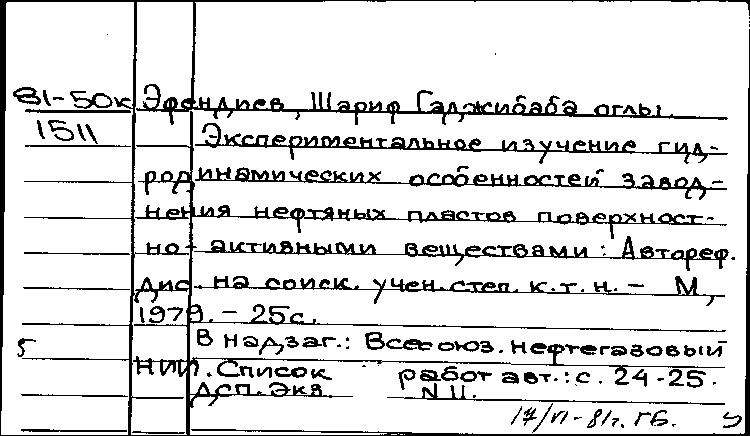 81-50к Эфендиев, Шариф Гаджибаба оглы.
1511 Экспериментальное изучение гид-
родинамических особенностей завод-
нения нефтяных пластов поверхност-
но-активными веществами: Автореф.
дис. на соиск. учен. степ. к.т.н. - М,
1979. - 25с.
5 В надзаг.: Всесоюз. нефтегазовый
НИИ. Список работ авт.: с. 24-25.
Дсп. Экз. N 11.
17/VI-81г. ГБ.